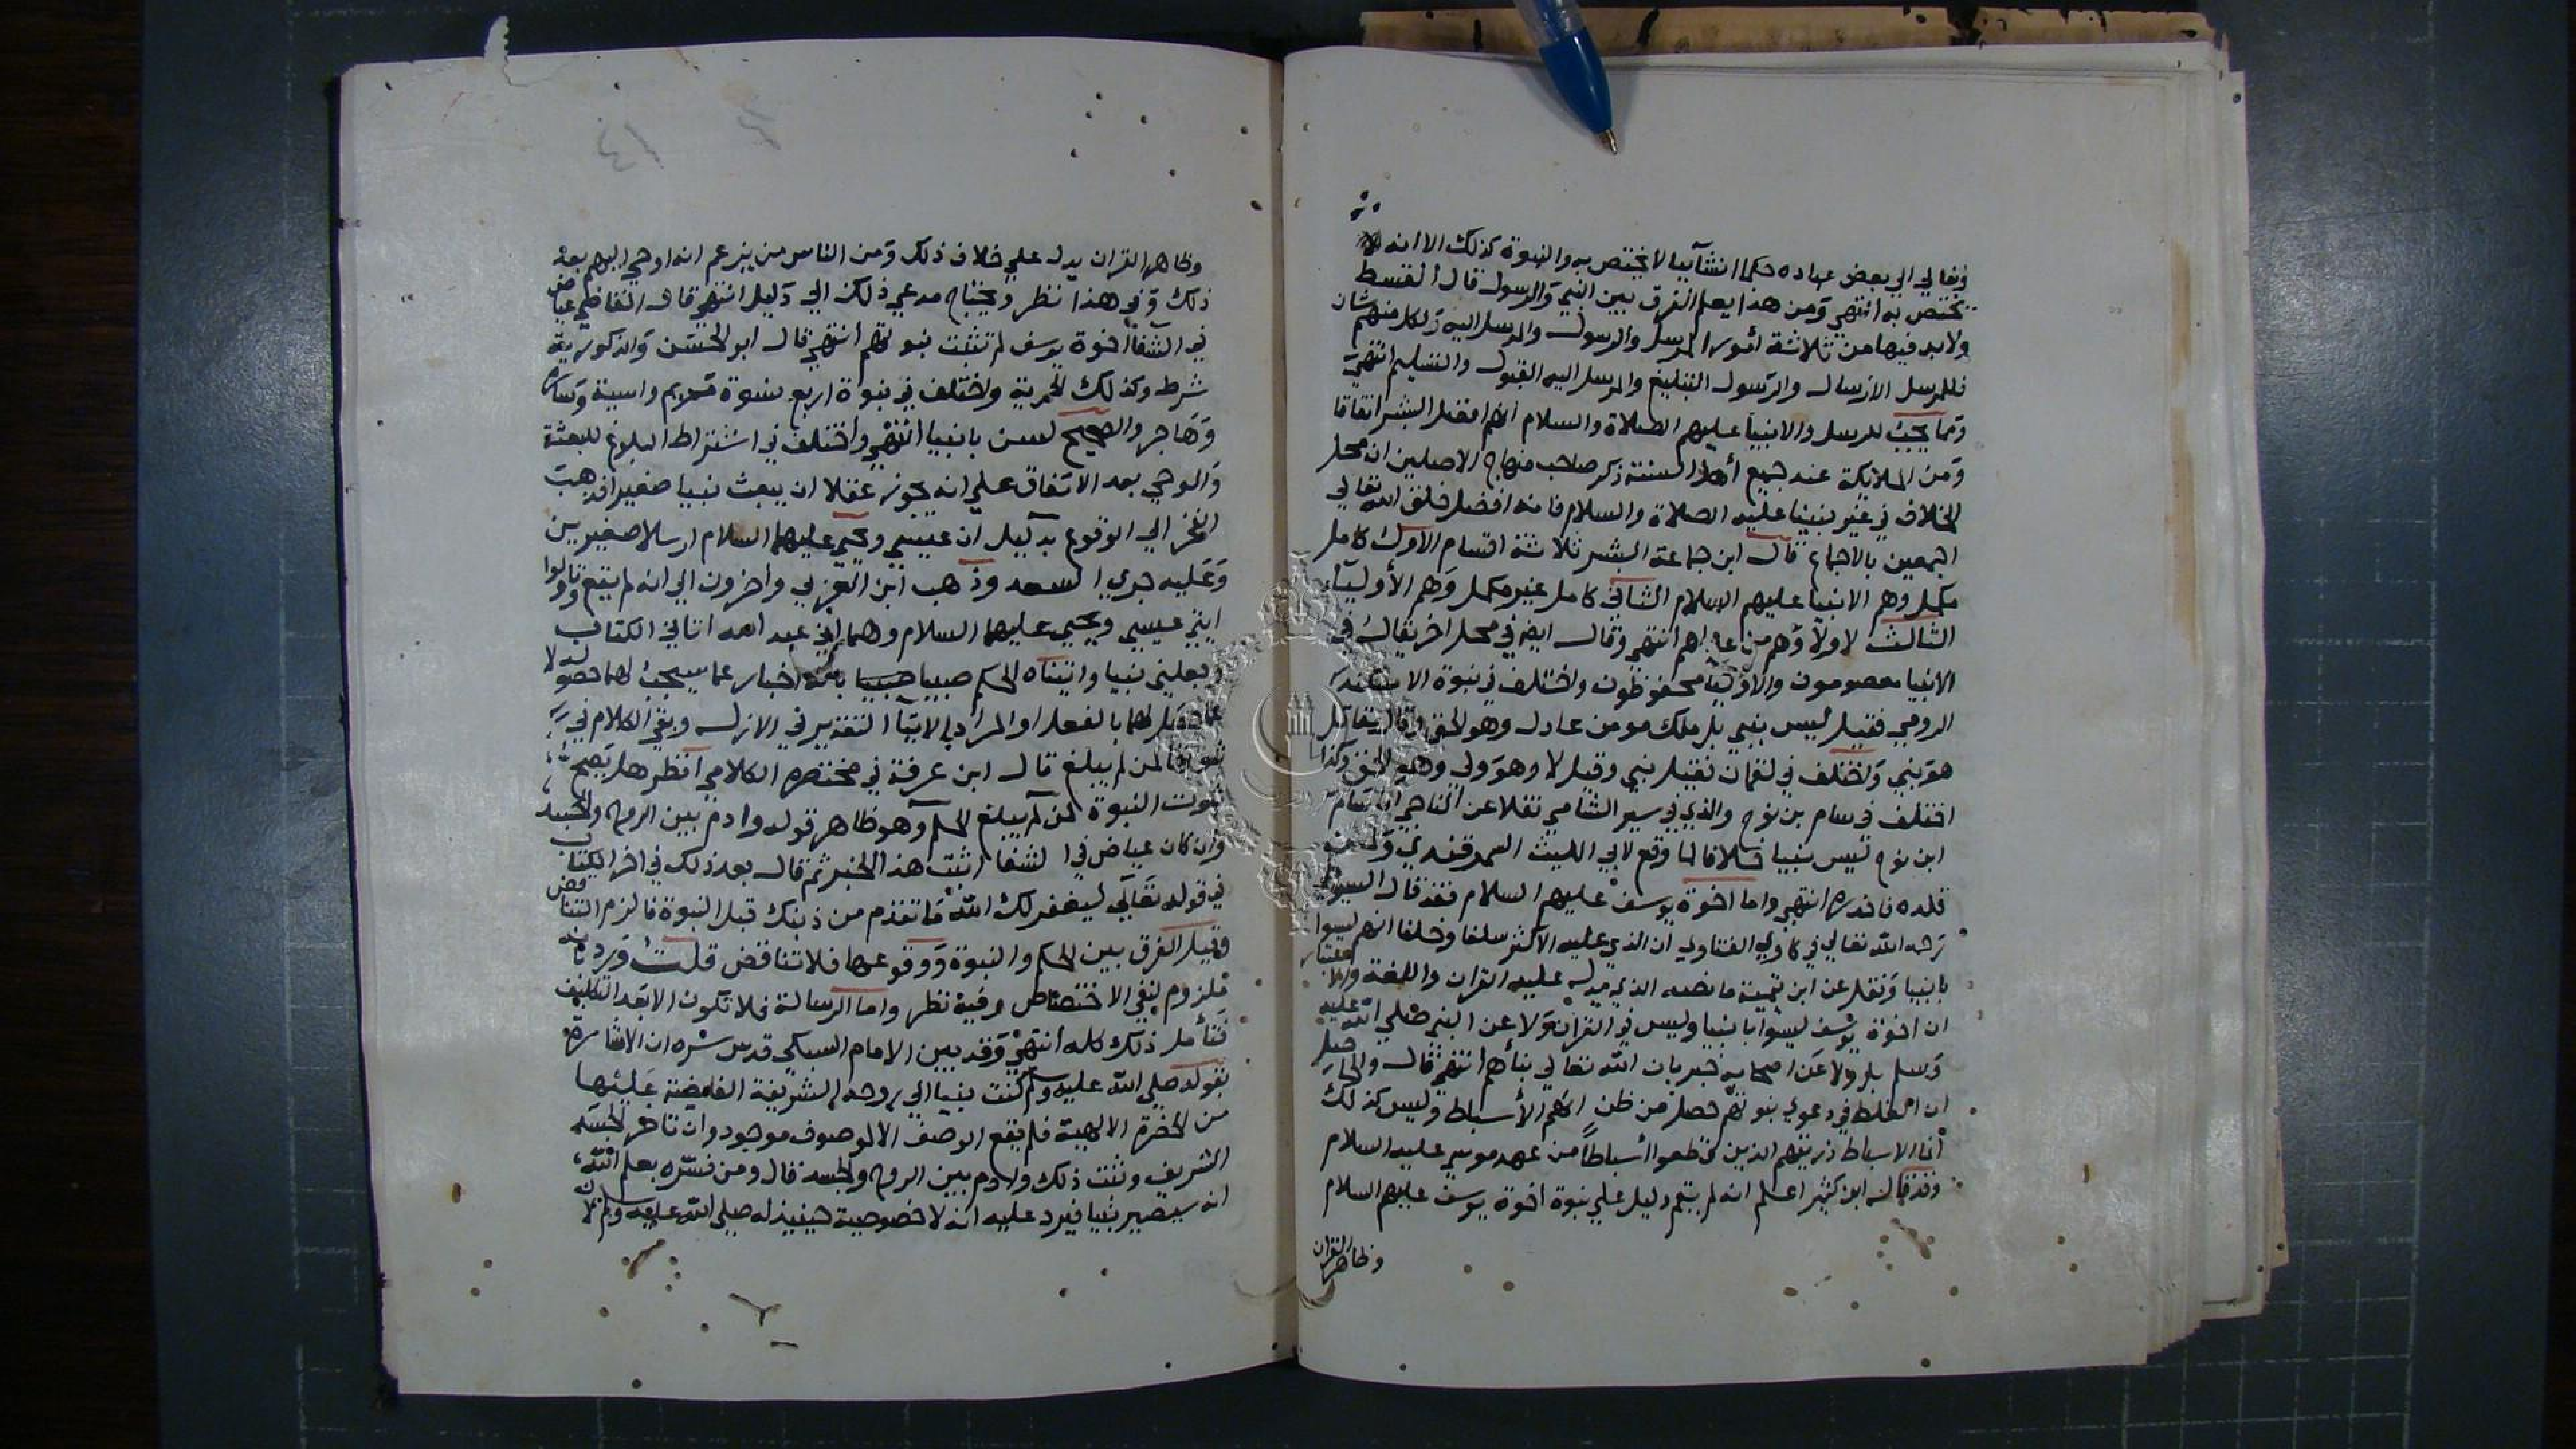 وتعالي الي بعض عباده حكما انشآييا لا يختص به والنبوة كذلك الا انه لا
يختص به انتهي ومن هذا يعلم الفرق بين النبي والرسول قال القسط
ولابد فيها من ثلاثة امور المرسل والرسول والمرسل اليه ولكل منهم شان
فللمرسل الارسال والرسول التبليغ والمرسل اليه القبول والتسليم انتهي
ومما يجب للرسل والانبيا عليهم الصلاة والسلام انهم افضل البشر اتفاقا
ومن الملائكة عند جميع أهل السنة ذكر صاحب منهاج الاصلين ان محل
الخلاف في غير نبينا عليه الصلاة والسلام فانه افضل خلق الله تعالي
اجمعين بالاجماع قال ابن جماعة البشر ثلاثة اقسام الاول كامل
مكمل وهم الانبيا عليهم السلام الثاني كامل غير مكمل وهم الأوليآء
الثالث لا ولا وهم من عداهم انتهي وقال ايضا في محل اخر يقال في
الانبيا معصومون والاوليا محفوظون واختلف في نبوة الاسكندر
الرومي فقيل ليس بنبي بل ملك مومن عادل وهو الحق وقال مقاتل
هو نبي واختلف في لقمان فقيل نبي وقيل لا وهو ولي وهو الحق وكذا
اختلف في سام بن نوح والذي في سير الشامي نقلا عن الناجي ان سام
ابن نوح ليس بنبيا خلافا لما وقع لابي الليث السمرقندي ومن
قلده فاحذره انتهي واما اخوة يوسف عليهم السلام فقد قال السيوطي
رحمه الله تعالي في حاوي الفتاوي ان الذي عليه الاكثر سلفا وخلفا انهم ليسوا
بانبيا ونقل عن ابن تيمية ما نصه الذي يدل عليه القران واللغة والاعتبار
ان اخوة يوسف ليسوا بانبيا وليس في القرآن ولا عن النبي صلي الله عليه
وسلم بل ولا عن اصحابه خبر بان الله تعالي نبأهم انتهي قال والحاصل
ان الغلط في دعوي نبوتهم حصل من ظن انهم الأسباط وليس كذلك
انما الاسباط ذريتهم الذين قطعوا أسباطًا من عهد موسي عليه السلام
وقد قال ابن كثير اعلم انه لم يقم دليل علي نبوة اخوة يوسف عليهم السلام
وظاهر القران
وظاهر القران يدل علي خلاف ذلك ومن الناس من يزعم انه اوحي اليهم بعد
ذلك وفي هذا نظر ويحتاج مدعي ذلك الي دليل انتهي قال القاضي عياض
في الشفا اخوة يوسف لم تثبت نبوتهم انتهي قال ابو الحسن والذكورية
شرط وكذلك الحرية واختلف في نبوة اربع نسوة مريم واسية وسارة
وهاجر والصحيح لسن بانبيا انتهي واختلف في اشتراط البلوغ للبعثة
والوحي بعد الاتفاق علي انه يجوز عقلا ان يبعث نبيا صغيرا فذهب
الفخر الي الوقوع بدليل ان عيسي ويحيي عليهما السلام ارسلا صغيرين
وعليه جري السعد وذهب ابن العربي واخرون الي انه لم يقع وتاولوا
ايتي عيسي ويحيي عليهما السلام وهما اني عبد الله اتاني الكتاب
وجعلني نبيا واتيناه الحكم صبيا بانه اخبار عما سيجب لهما حصوله لا
عما حصل لهما بالفعل او المراد بالايتاء التقدير في الازل وبقي الكلام في
ثبوتها لمن لم يبلغ قال ابن عرفة في مختصره الكلامي انظر هل يصح
ثبوت النبوة لمن لم يبلغ الحلم وهو ظاهر قوله وادم بين الروح والجسد
وان كان عياض في الشفا اثبت هذا الخبر ثم قال بعد ذلك في اخر الكتاب
في قوله تعالي ليغفر لك الله ما تقدم من ذنبك قبل النبوة فالزم التناقض
وقيل الفرق بين الحكم والنبوة ووقوعها فلا تناقض قلت ورد بانه
ملزوم لنفي الاختصاص وفيه نظر واما الرسالة فلا تكون الا بعد التكليف
فتأمل ذلك كله انتهي وقد بين الامام السبكي قدس سره ان الاشارة
بقوله صلي الله عليه وسلم كنت نبيا الي روحه الشريفة الفايضة عليها
من الحضرة الالهية فلم يقع الوصف الا لموصوف موجود وان تاخر الجسد
الشريف وثبت ذلك وادم بين الروح والجسد قال ومن فسره بعلم الله
انه سيصير نبيا فيرد عليه انه لا خصوصية حينيذ له صلي الله عليه وسلم لان